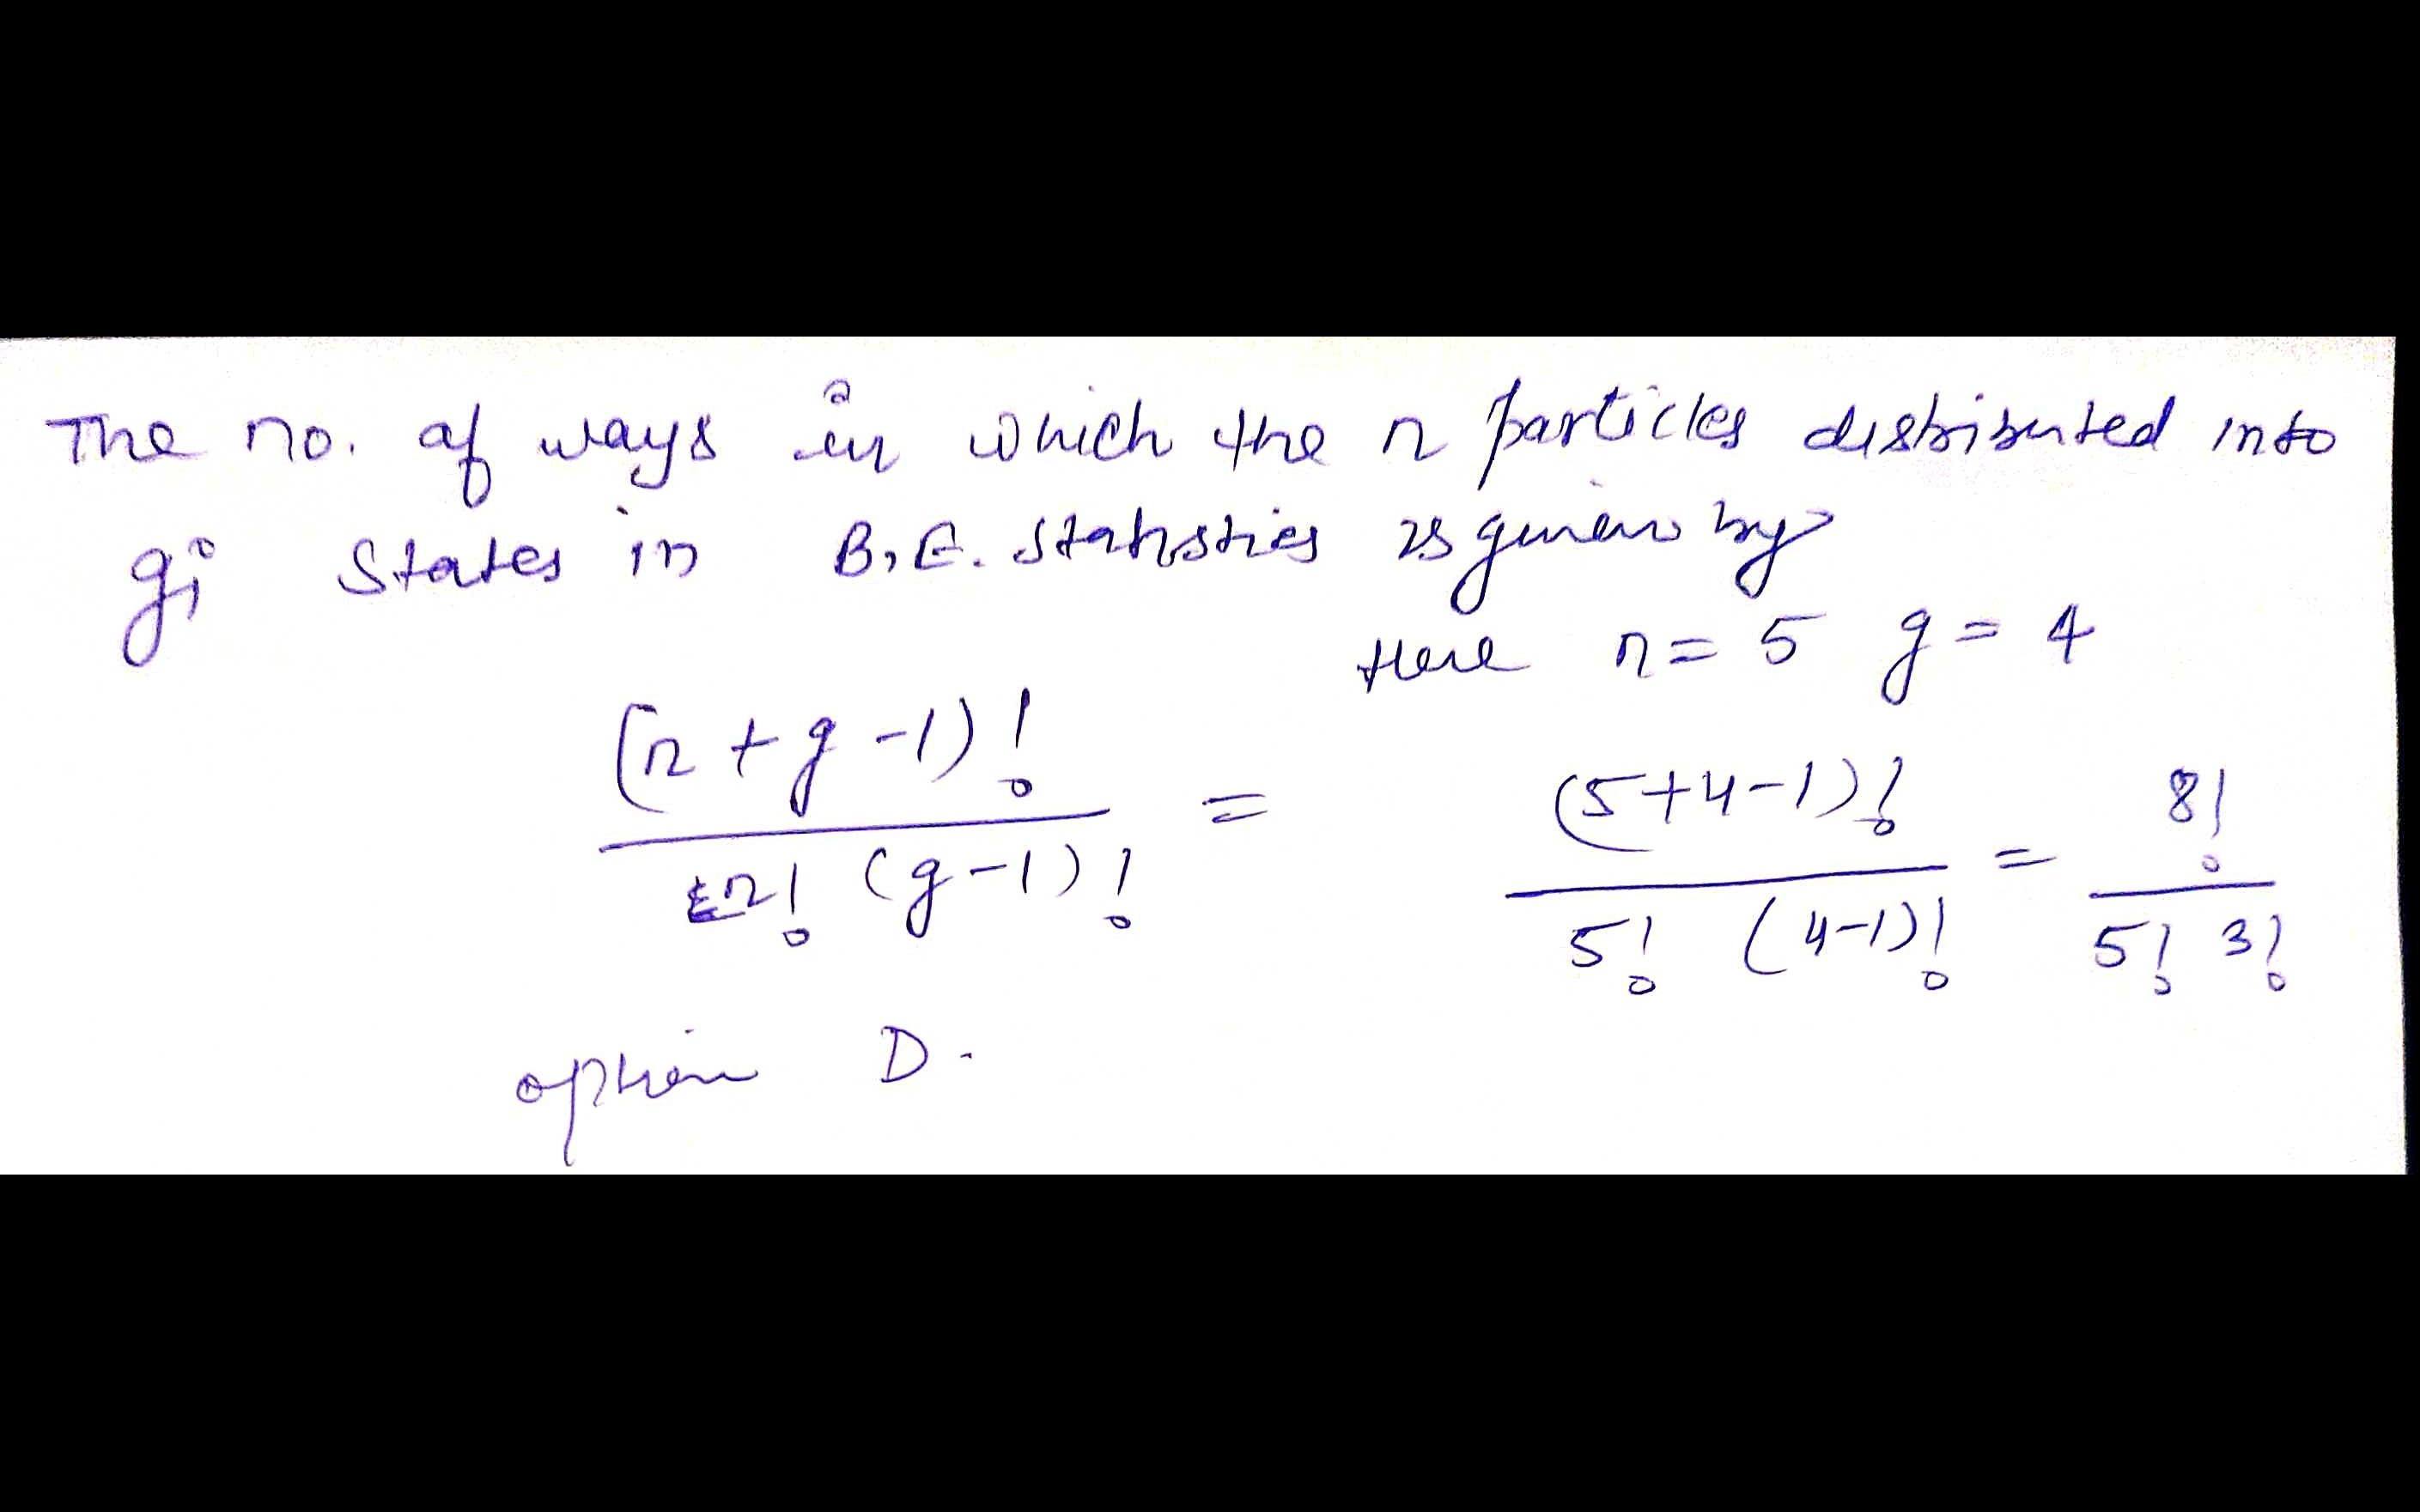 The no. of ways in which the n particles distributed into
gi States in B.E. Statistics is given by
Here n = 5 g = 4
(n + g - 1)! / n! (g - 1)! = (5+4-1)! / 5! (4-1)! = 8! / 5! 3!
option D.